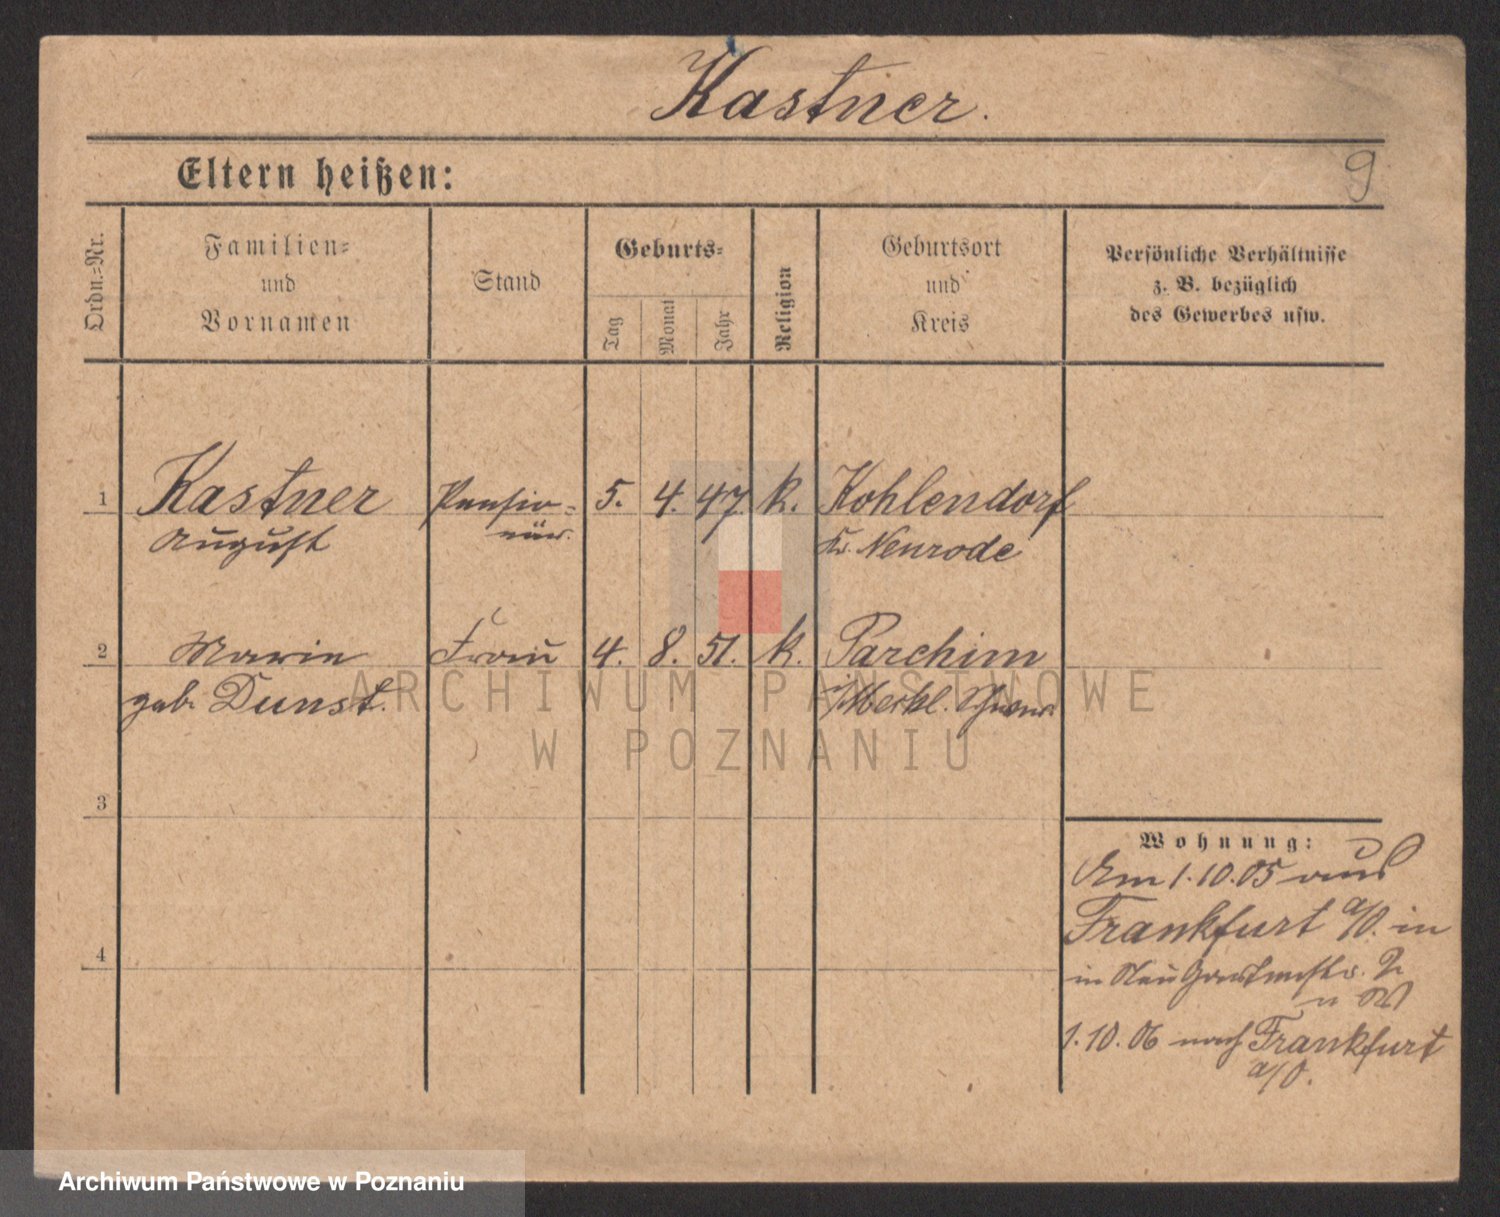 Kastner.
9
Eltern heißen:
Ordn.=Nr.
Familien=
und
Vornamen
Stand
Geburts=
Tag
Monat
Jahr
Religion
Geburtsort
und
Kreis
Persönliche Verhältnisse
z. B. bezüglich
des Gewerbes usw.
1 Kastner Pensio= 5. 4. 47 k. Kohlendorf
August när. Kr. Neurode
2 Marie Frau 4. 8. 51. k. Parchim
geb. Dunst. i/Meckl.
3
Wohnung:
Am 1.10.05 aus
Frankfurt a/O. in
in Neu
4
1.10.06 nach Frankfurt
a/O.
ARCHIWUM PAŃSTWOWE
W POZNANIU
Archiwum Państwowe w Poznaniu